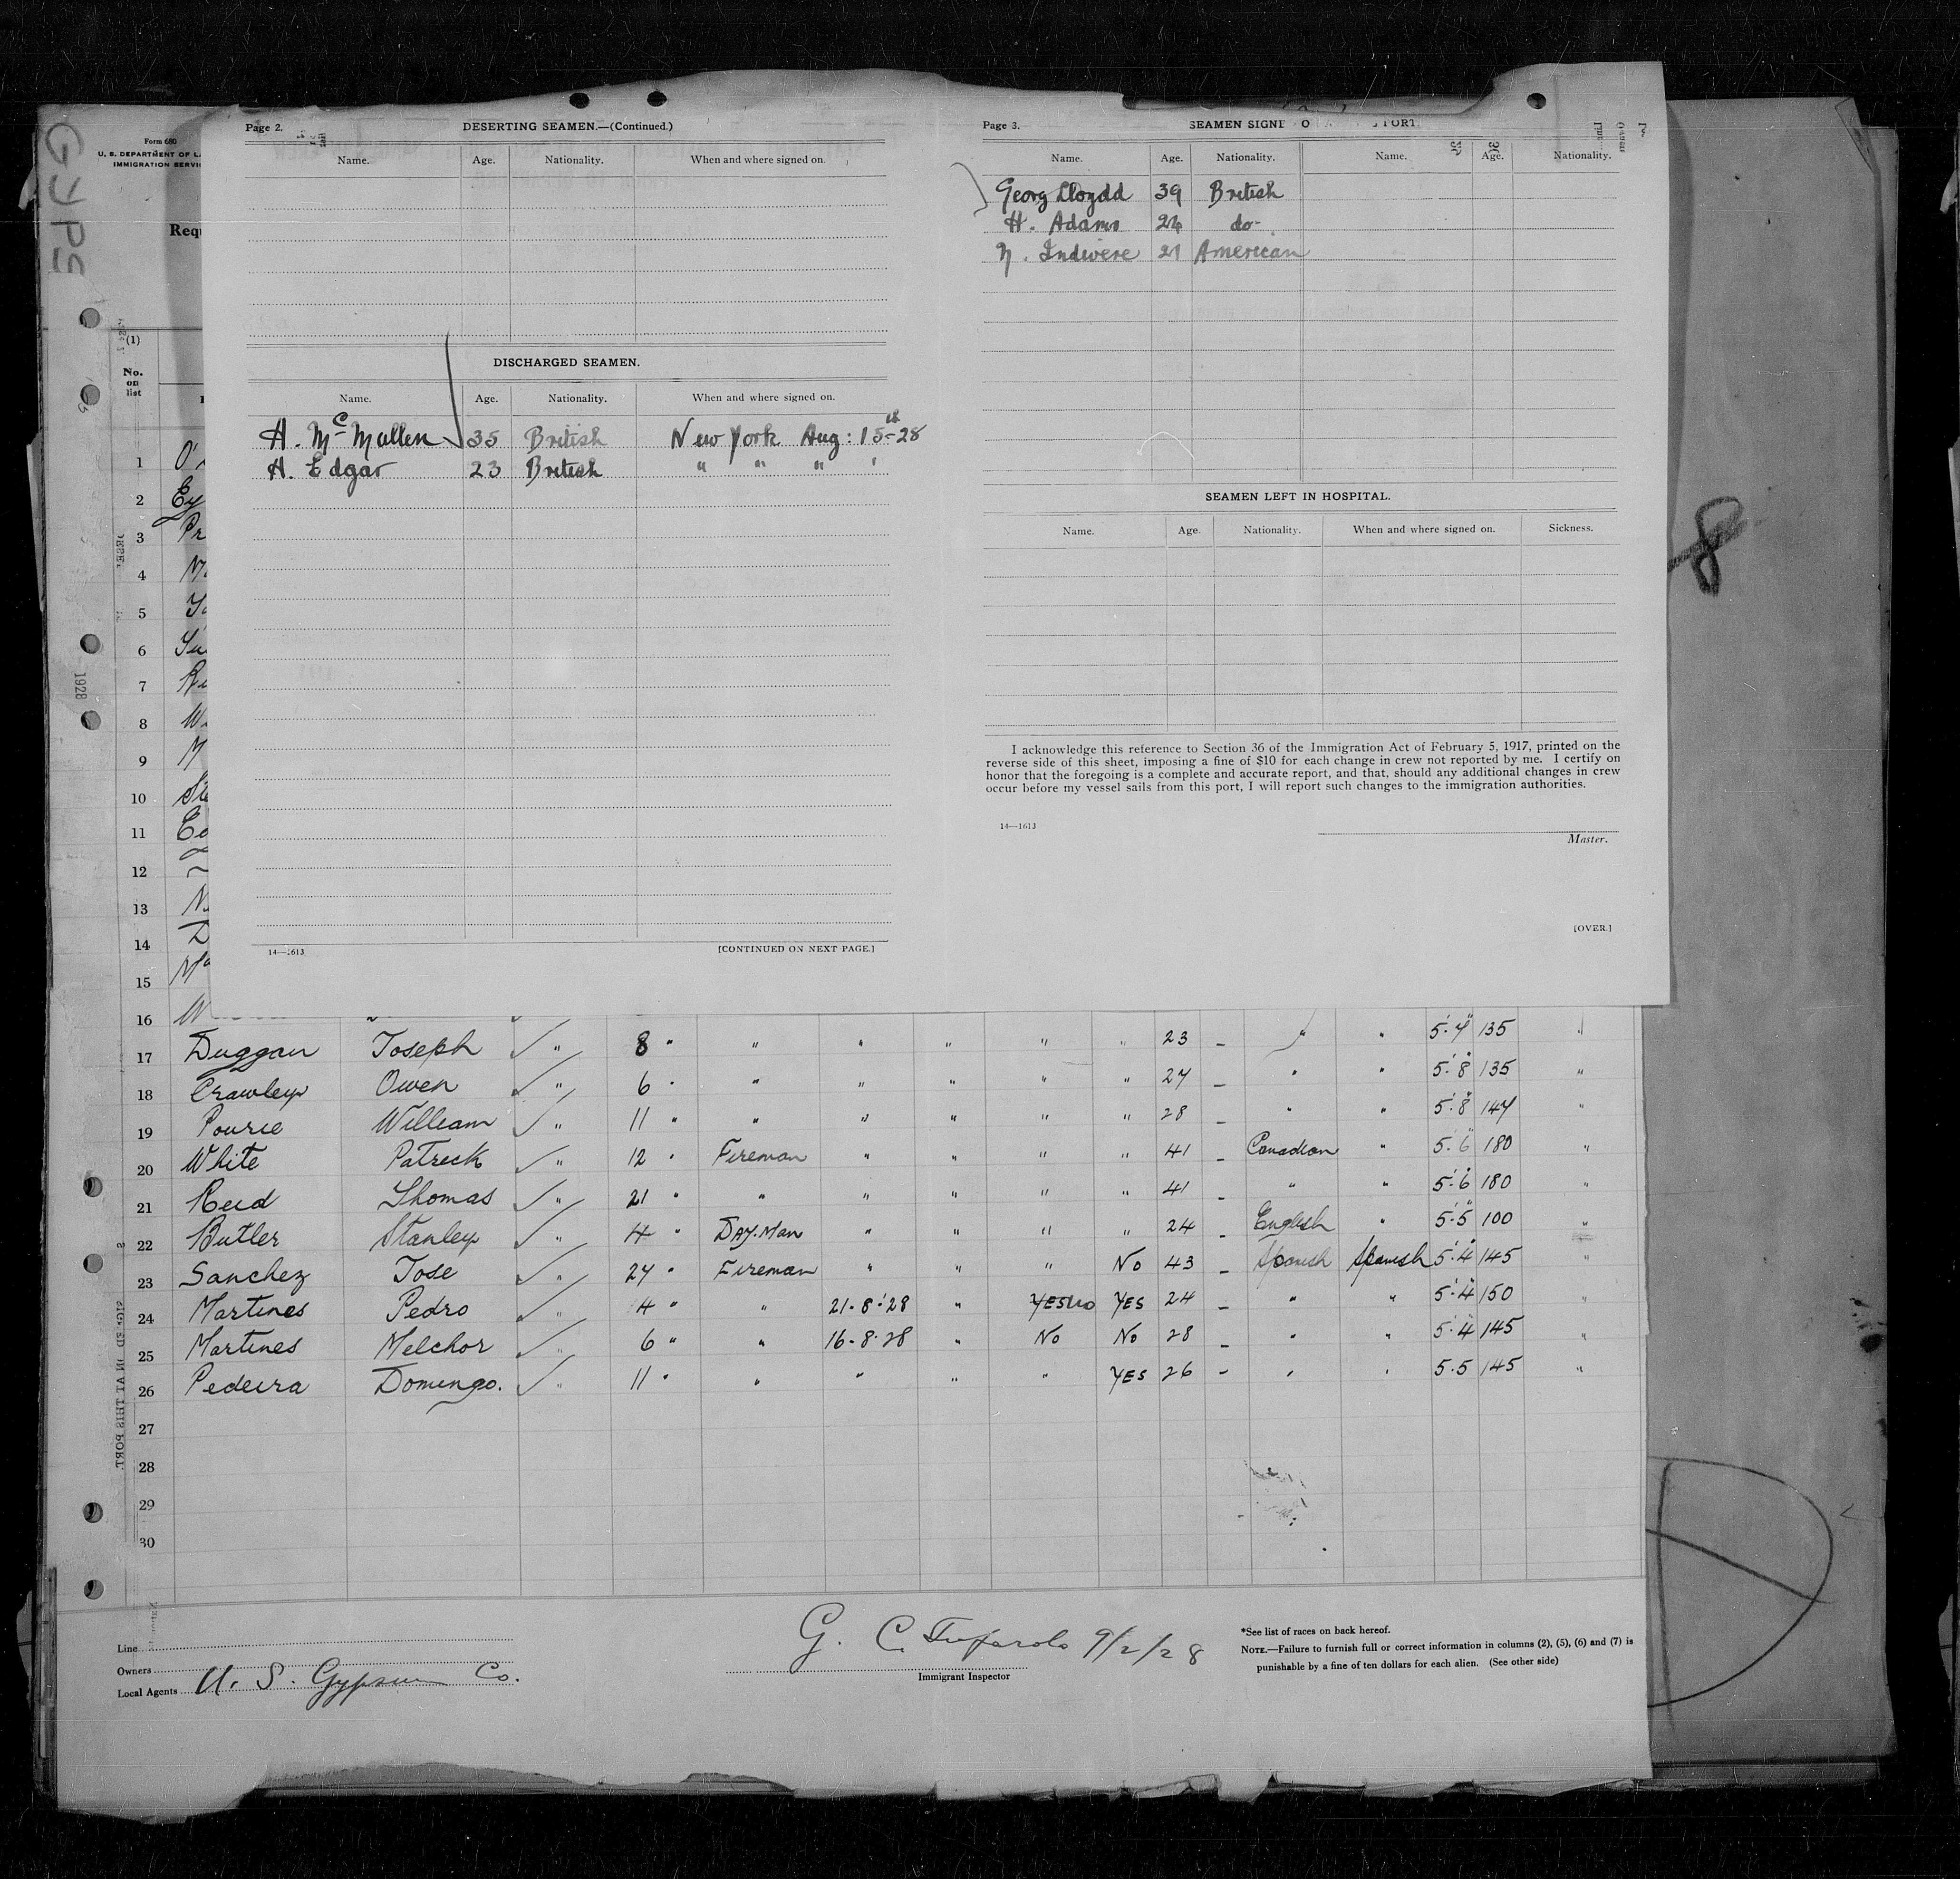 Form 680
U. S. DEPARTMENT OF
IMMIGRATION
GYPS
(1)
No.
on
list
1928
Page 2.
DESERTING SEAMEN.—(Continued.)
Name. Age. Nationality. When and where signed on.
DISCHARGED SEAMEN.
Name. Age. Nationality. When and where signed on.
H. McMullen 35 British New York Aug: 15th 28
H. Edgar 23 British " " " "
14—1613
[CONTINUED ON NEXT PAGE.]
Page 3.
SEAMEN
Name. Age. Nationality. Name. Age. Nationality.
Georg Lloydd 39 British
H. Adams 24 do
N. Indivere 21 American
SEAMEN LEFT IN HOSPITAL.
Name. Age. Nationality. When and where signed on. Sickness.
I acknowledge this reference to Section 36 of the Immigration Act of February 5, 1917, printed on the
reverse side of this sheet, imposing a fine of $10 for each change in crew not reported by me. I certify on
honor that the foregoing is a complete and accurate report, and that, should any additional changes in crew
occur before my vessel sails from this port, I will report such changes to the immigration authorities.
14—1613
Master.
[OVER.]
8
1
2
3
4
5
6
7
8
9
10
11
12
13
14
15
16
17 Duggan Joseph " 8 " " " " " " 23 – " " 5'.7" 135 "
18 Crawley Owen " 6 " " " " " " 27 – " " 5'.8" 135 "
19 Pourie William " 11 " " " " " " 28 – " " 5'.8" 147 "
20 White Patrick " 12 " Fireman " " " " 41 – Canadian " 5'.6" 180 "
21 Reid Thomas " 21 " " " " " " 41 – " " 5'.6" 180 "
22 Butler Stanley " 4 " Day.Man " " " " 24 – English " 5'.5" 100 "
23 Sanchez Jose " 24 " Fireman " " " No 43 – Spanish Spanish 5'.4" 145 "
24 Martines Pedro " 4 " " 21-8-'28 " Yes No Yes 24 – " " 5'.4" 150 "
25 Martines Melchor " 6 " " 16-8-28 " No No 28 – " " 5'.4" 145 "
26 Pedeira Domingo. " 11 " " " " " Yes 26 – " " 5.5 145 "
27
28
29
30
Line
Owners
Local Agents U. S. Gypsum Co.
G. C. 9/2/28
Immigrant Inspector
*See list of races on back hereof.
NOTE.—Failure to furnish full or correct information in columns (2), (5), (6) and (7) is
punishable by a fine of ten dollars for each alien. (See other side)